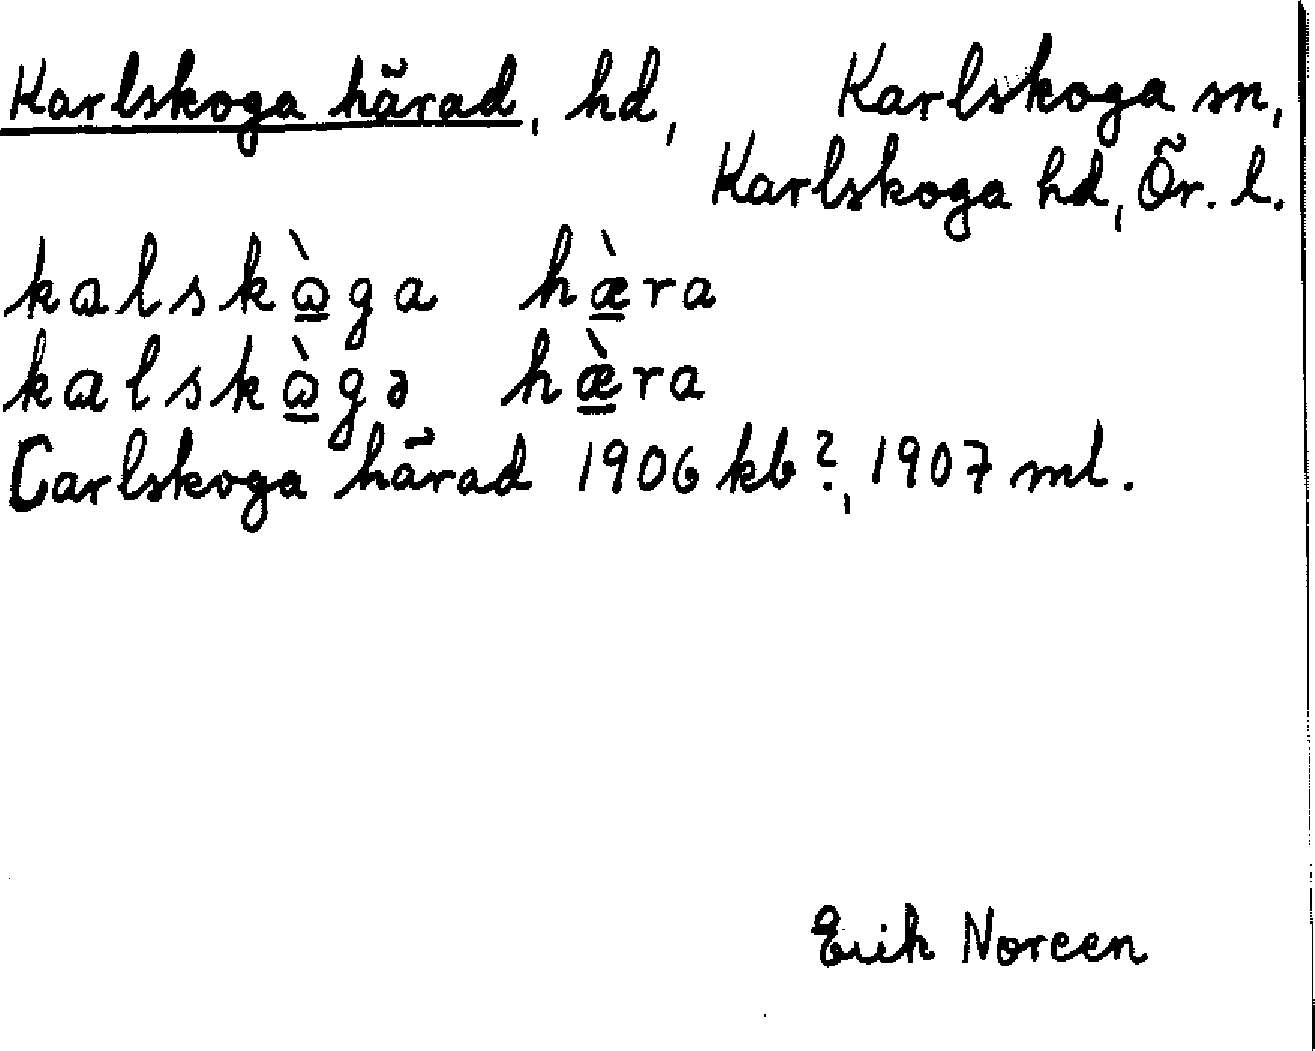 Karlskoga härad, hd, Karlskoga sn,
Karlskoga hd, Ör. l.
kalskɷ̠̀ga hæ̠̀ra
kalskɷ̠̀gə hæ̠̀ra
Carlskoga härad 1906 kb?, 1907 ml.
Erik Noreen